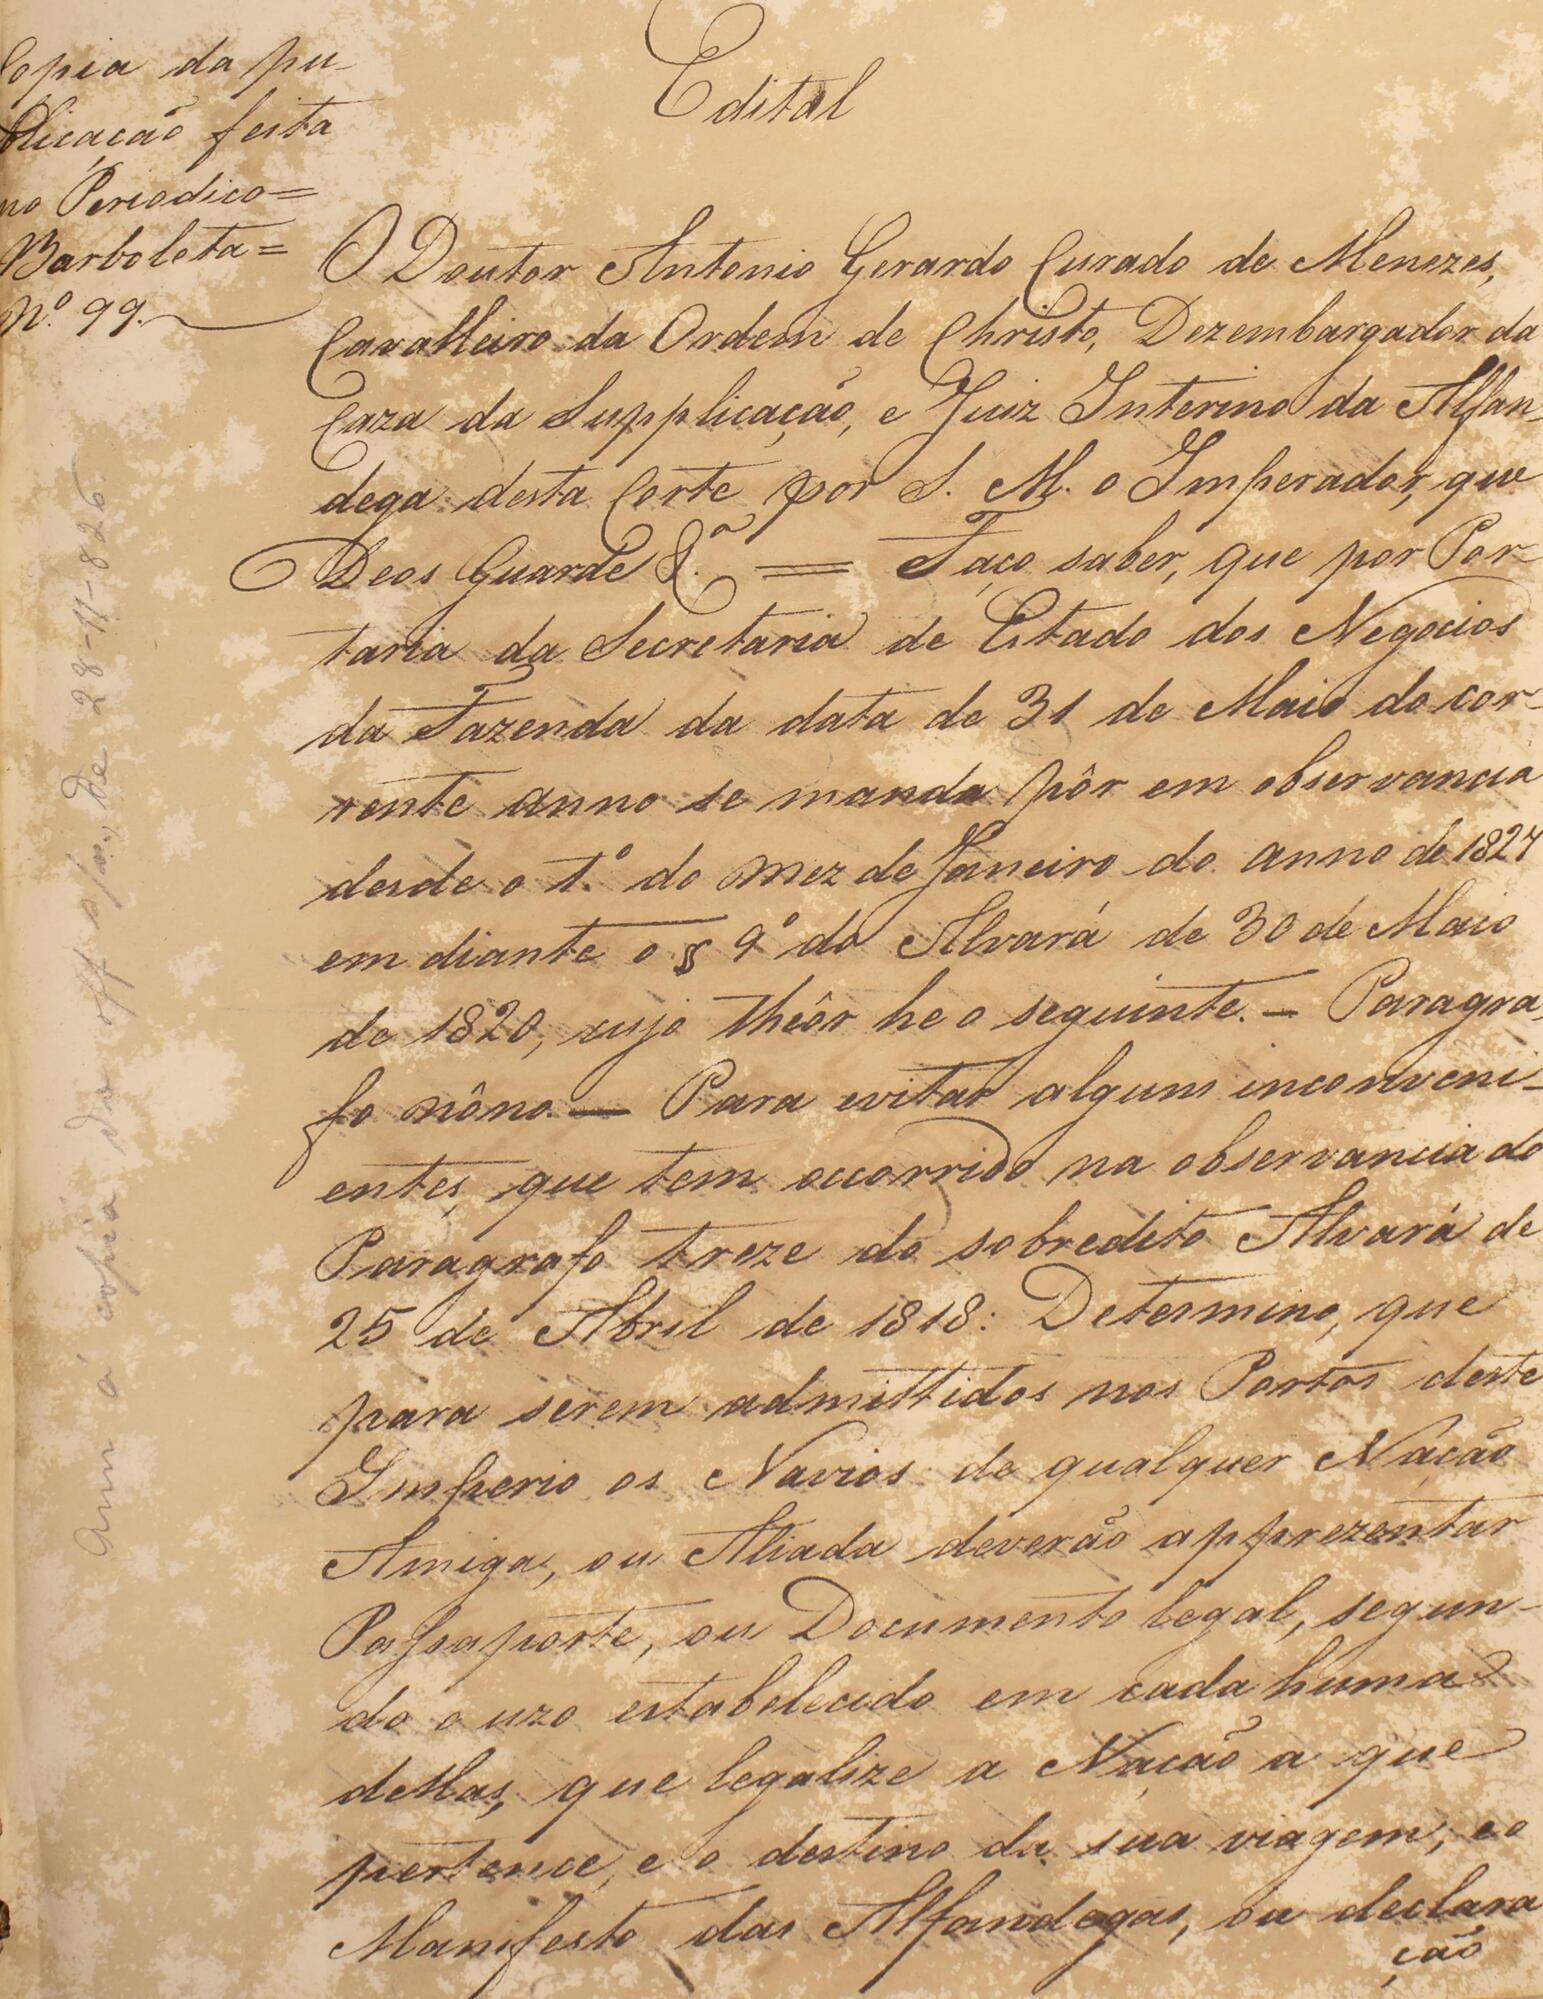 Edital
Copia da pu-
blicação feita
no Periodico=
Barboleta=
Nº. 99.
O Doutor Antonio Gerardo Curado de Menezes,
Cavalleiro da Ordem de Christo, Dezembargador da
Caza da Supplicação, e Juiz Interino da Alfan-
dega desta Corte por S. M. o Imperador, que
Deos Guarde &.ª = Faço saber, que por Por-
taria da Secretaria de Estado dos Negocios
da Fazenda da data de 31 de Maio do cor-
rente anno se manda pôr em observancia
desde o 1.º do mez de Janeiro do anno de 1827
em diante o § 9º do Alvará de 30 de Maio
de 1820, cujo thêor he o seguinte. — Paragra-
fo nôno. — Para evitar alguns inconveni-
entes, que tem occorrido na observancia do
Paragrafo treze do sobredito Alvará de
25 de Abril de 1818: Determino, que
para serem admittidos nos Portos deste
Imperio os Navios de qualquer Nação
Amiga, ou Aliada deverão apprezentar
Passaporte, ou Documento legal, segun-
do o uzo estabelecido em cada huma
dellas, que legalize a Nação a que
pertence, e o destino da sua viagem, e o
Manifesto das Alfandegas, ou declara
ção
Ann á copia do off s/nº, de 28-11-826.